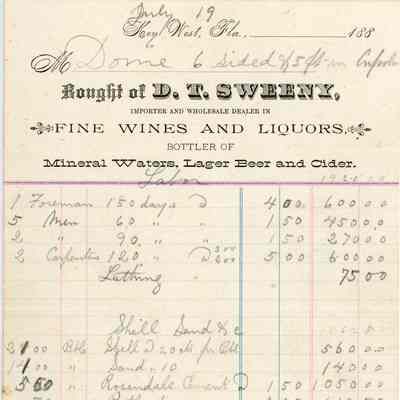 July 19
Key West, Fla. 188
M Dome 6 sided 75 ft in Cupola
Bought of D. T. SWEENY,
IMPORTER AND WHOLESALE DEALER IN
FINE WINES AND LIQUORS,
BOTTLER OF
Mineral Waters, Lager Beer and Cider.
Labor
1 Foreman 150 days 4 00 600 00
5 Men 60 " " 1 50 450 00
2 " 90 " " 1 50 270 00
2 Carpenters 120 " 5 00 600 00
Lathing 75 00
Shell Sand &c
Bbls Shell 20 cts per Bbl 560 00
" Sand " 10 140 00
" Rosendale Cement 1 50 1050 00